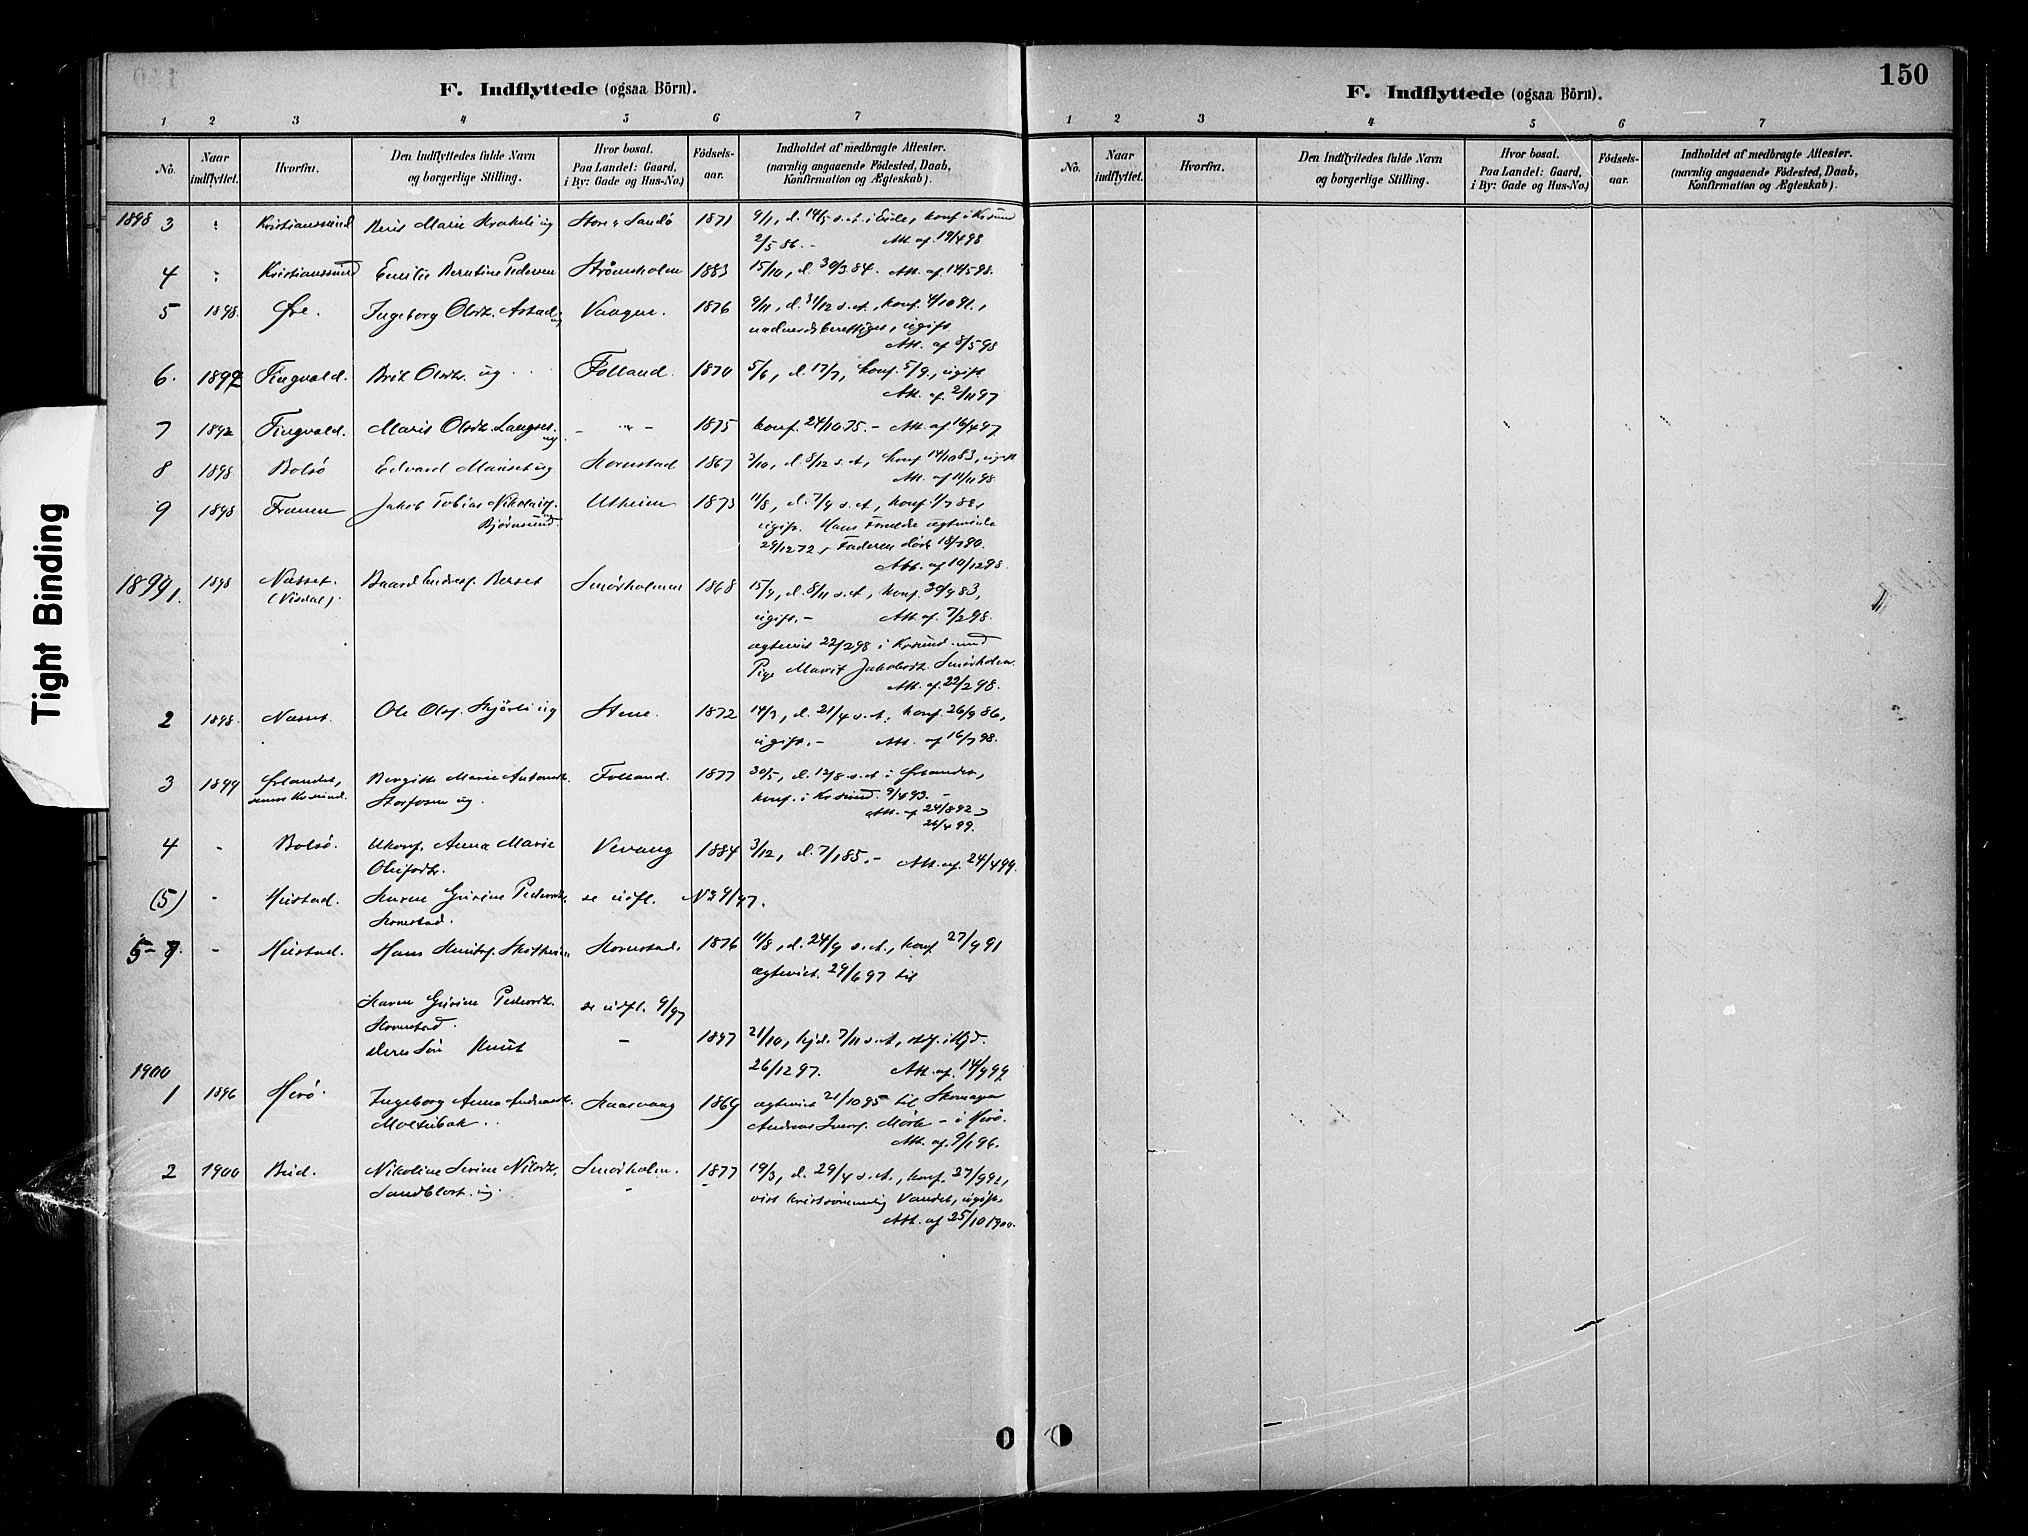 150
F. Indflyttede (ogsaa Börn).
1 2 3 4 5 6 7
No. Naar indflyttet. Hvorfra. Den Indflyttedes fulde Navn og borgerlige Stilling. Hvor bosat. Paa Landet: Gaard, i By: Gade og Hus-No.) Födsels-aar. Indholdet af medbragte Attester. (navnlig angaaende Födested, Daab, Konfirmation og Ægteskab).
1898 3 " Kristianssund Marie ug Store Sandö 1871 9/1, d. 14/5 s.A. i Eide, konf. i Krsund
2/5 86. – Att. af 19/4 98
4 " Kristianssund Emilie Berntine Pedersen Strømsholm 1883 15/10, d. 30/3 84. Att. af 14/5 98.
5 1898. Øre. Ingeborg Olsdtr. Astad ug Vaagen. 1876 9/11, d. 31/12 s.A., konf. 4/10 91.,
nadverdsberettiget, ugift
Att. af 8/5 98
6. 1897 Tingvold. Brit Olsdtr. ug Folland. 1870 5/6, d. 17/7, konf. 5/9., ugift
Att. af 2/11 97
7 1892 Tingvold. Marit Olsdtr. Langset ug. – " – 1875 konf. 24/10 75. – Att. af 16/4 97
8 1898 Bolsö Edvard ug Hornstad 1867 2/10, d. 8/12 s.A., konf. 14/10 83, ugift
Att. af 11/11 98.
9 1898 Frænen Jakob Tobias Nikolaisen Utheim 1873 11/8, d. 7/9 s.A., konf. 1/7 88,
Bjørnsund. ugift. Hans Forældre ægteviede
29/12 72, Faderen död 18/7 90.
Att. af 10/12 98.
1899 1. 1898 Næsset. Baard Endresen Berset Smörholmen 1868 15/9, d. 8/11 s.A., konf. 30/9 83,
(Visdal). ugift. – Att. af 7/2 98.
ægteviet 22/2 98 i Krsund med
Pige Marit Jakobsdtr. Smörholm.
Att. af 22/2 98.
2 1898. Næsset. Ole Olsen ug Stene. 1872 14/3, d. 21/4 s.A., konf. 26/9 86,
ugift. – Att. af 16/7 98.
3 1899 Ørlandet, Bergitte Marie Antonsdtr. Folland. 1877 30/5, d. 12/8 s.A. i Ørlandet,
senere Krsund. Storfosen ug. konf. i Krsund. 9/4 93. –
Att. af 24/8 92 –
26/4 99.
4 - Bolsö. Ukonf. Anna Marie Vevang 1884 3/12, d. 7/1 85. – Att. af 24/4 99.
(5) - Hustad. Karen Gurine Pedersdtr. se udfl. N3 9/97.
Hornstad.
5-7. - Hustad. Hans Knutsen Hornstad. 1876 11/8, d. 24/9 s.A., konf. 27/9 91
ægteviet. 29/6 97 til
Karen Gurine Pedersdtr. se udfl. 9/97
Hornstad.
deres Sön Knut – 1897 21/10, hjd. 7/11 s.A., stf. i Kjd.
26/12 97. Att. af 14/9 99
1900
1 1896 Herö. Ingeborg Anna 1869 ægteviet 21/10 95 til Skomager
Andreas Iversen – i Herö.
Att. af 9/1 96.
2 1900 Bud. Nikoline Serine Nilsdtr. Smörholm. 1877 19/3, d. 29/4 s.A., konf. 27/9 92,
Sandblost. ug. – vist kristsömmelig Vandel, ugift.
Att. af 25/10 1900.
F. Indflyttede (ogsaa Börn).
1 2 3 4 5 6 7
No. Naar indflyttet. Hvorfra. Den Indflyttedes fulde Navn og borgerlige Stilling. Hvor bosat. Paa Landet: Gaard, i By: Gade og Hus-No.) Födsels-aar. Indholdet af medbragte Attester. (navnlig angaaende Födested, Daab, Konfirmation og Ægteskab).
Tight Binding